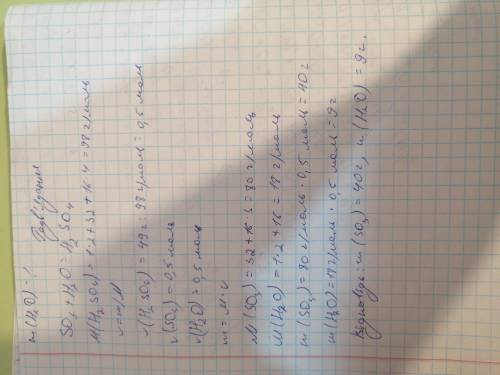 m(H₂O) = ?
Розв'язання
SO₃ + H₂O = H₂SO₄
M(H₂SO₄) = 1·2 + 32 + 16·4 = 98 г/моль
ν = m/M
ν(H₂SO₄) = 49г : 98 г/моль = 0,5 моль
ν(SO₃) = 0,5 моль
ν(H₂O) = 0,5 моль
m = M·ν
M(SO₃) = 32 + 16·3 = 80 г/моль
M(H₂O) = 1·2 + 16 = 18 г/моль
m(SO₃) = 80 г/моль · 0,5 моль = 40 г
m(H₂O) = 18 г/моль · 0,5 моль = 9 г
Відповідь: m(SO₃) = 40г, m(H₂O) = 9г.